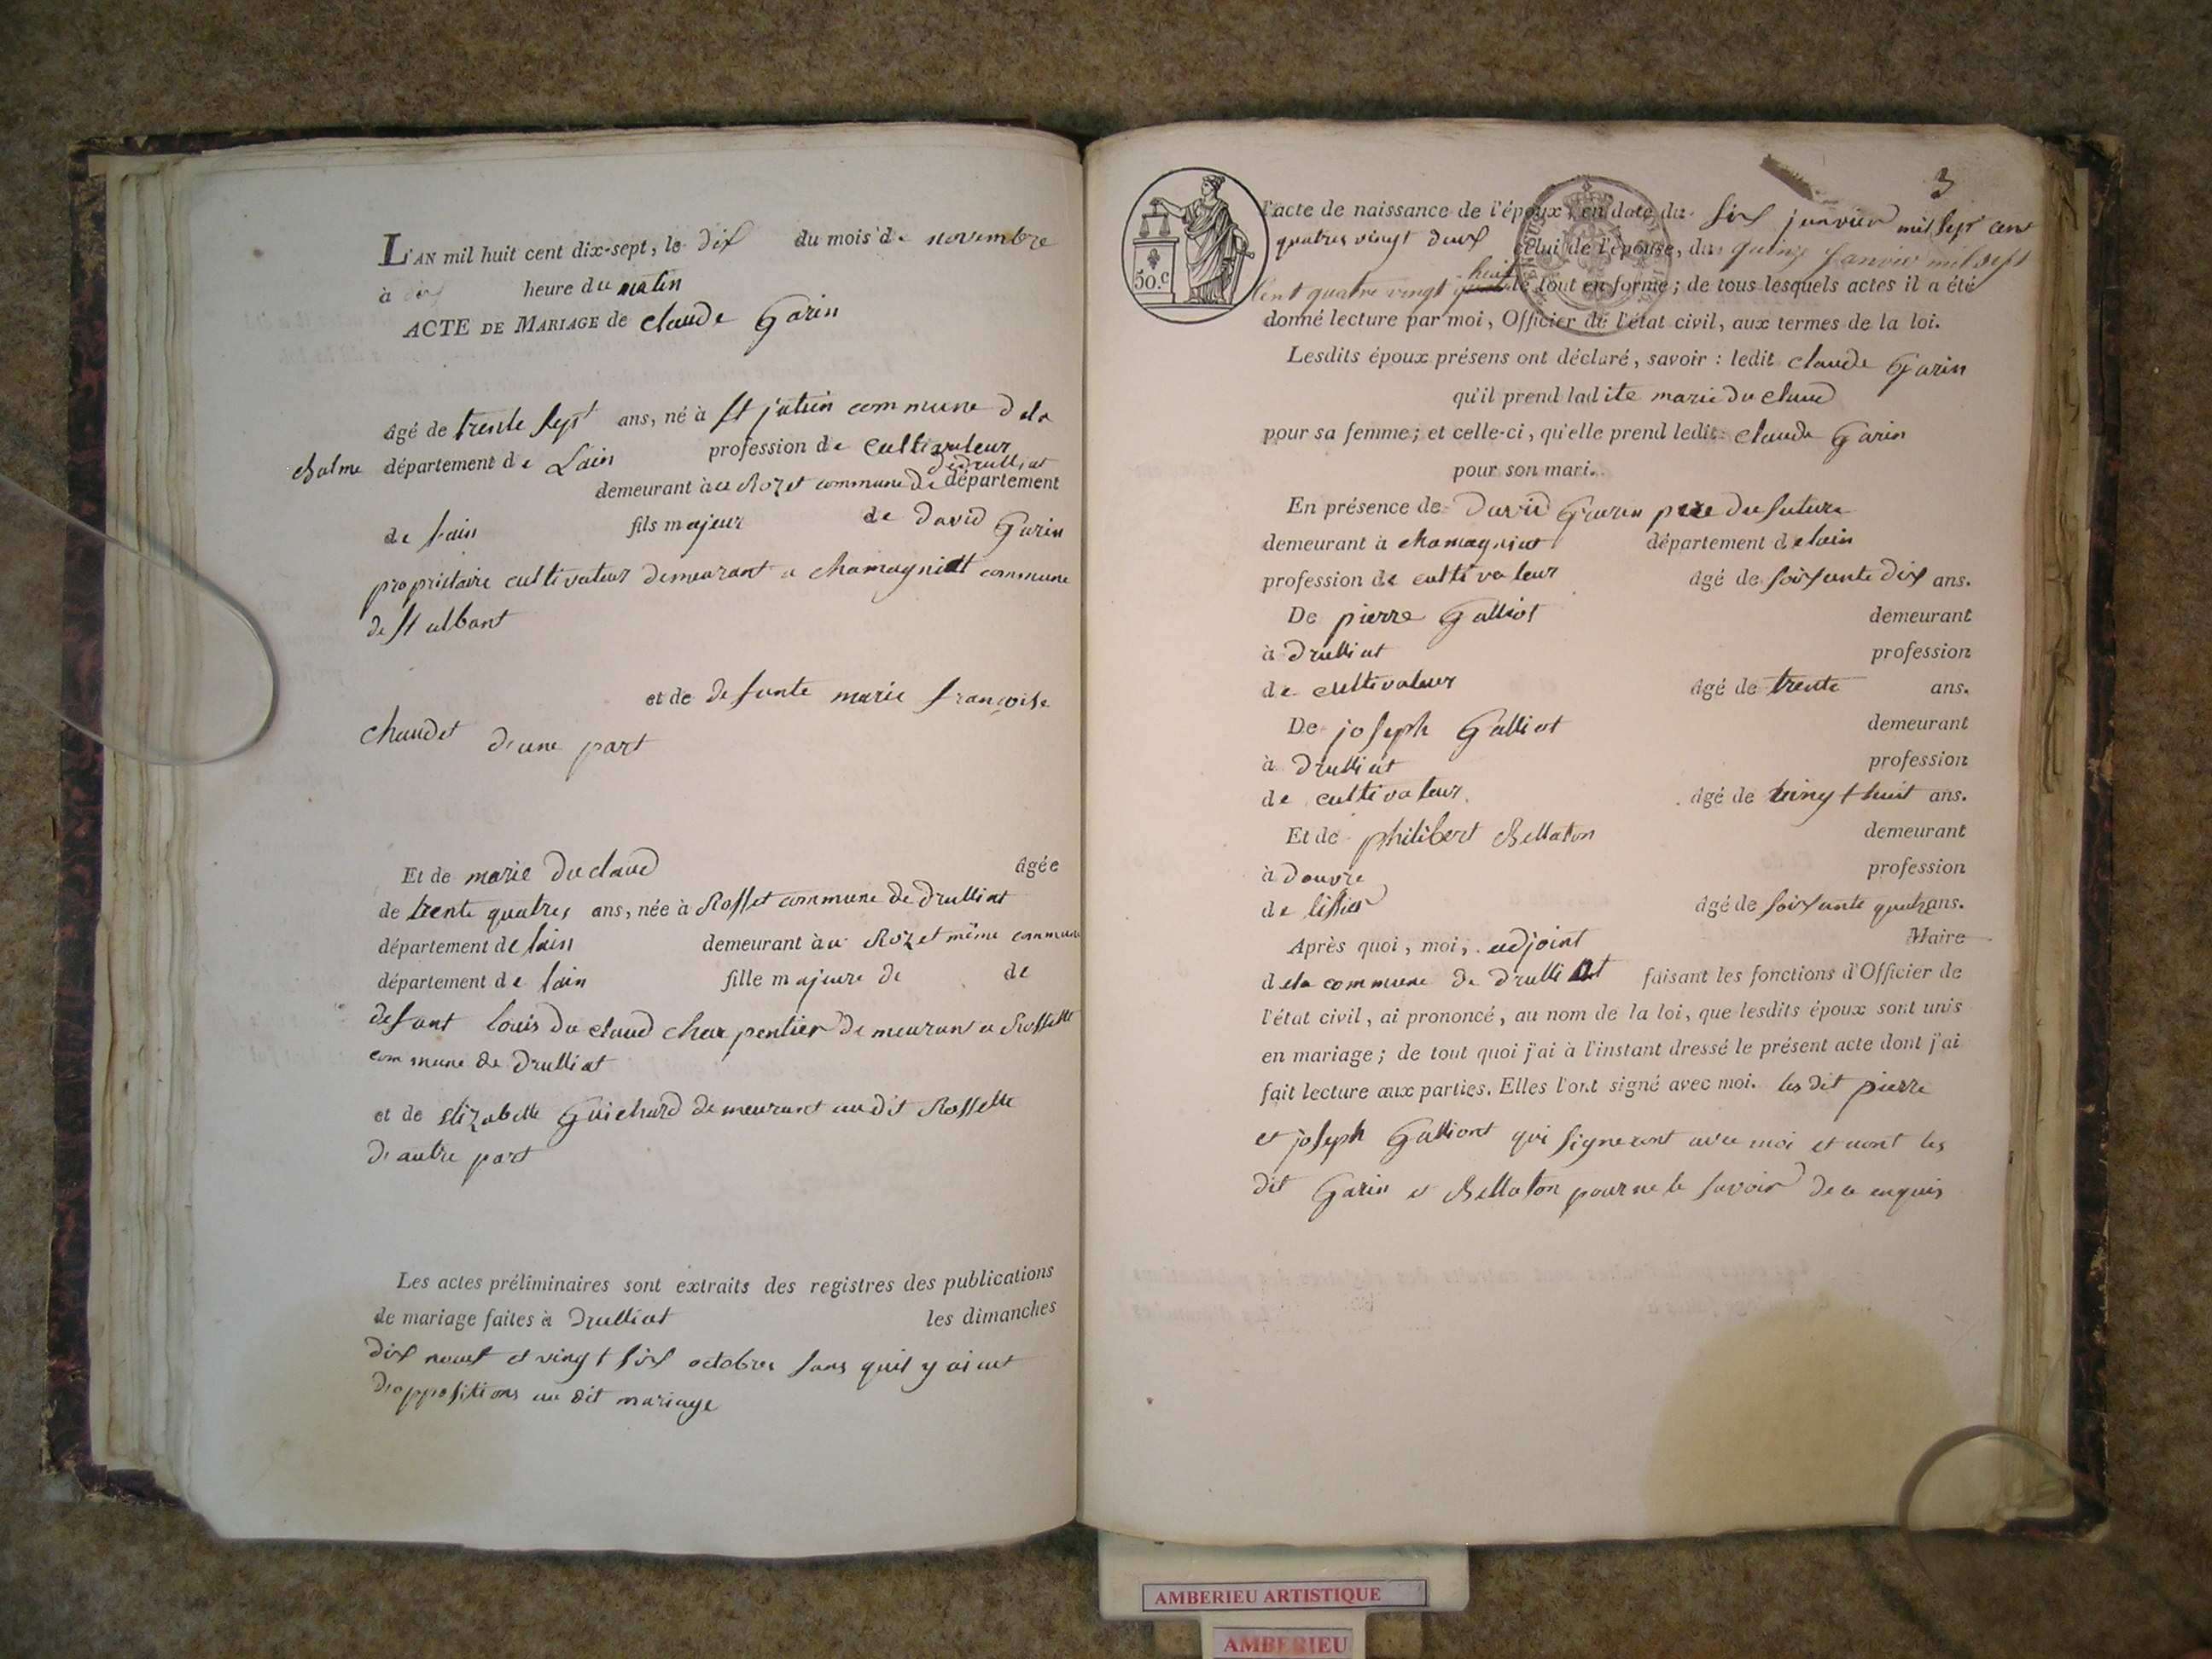 L'AN mil huit cent dix-sept, le dix du mois de novembre
à dix heure du matin
ACTE DE MARIAGE de claude Garin
âgé de trente sept ans, né à st julien commune dela
chalme département de Lain profession de cultivateur
dedrulliat
demeurant àu Rozet commune de département
de lain fils majeur de david Garin
propriétaire cultivateur demeurant a chamagniat commune
de st albant
et de defunte marie françoise
chaudet d'une part
Et de marie Du claud âgée
de trente quatres ans, née à Rosset commune de Drulliat
département de lain demeurant àu Rozet même commune
département de lain fille majeure de de
defunt louis Du claud charpentier demeurant a Rossette
commune de Drulliat
et de elizabette Guichard demeurant audit Rossette
d'autre part
Les actes préliminaires sont extraits des registres des publications
de mariage faites à Drulliat les dimanches
dix neuf et vingt six octobre sans quil y ai eut
d'oppositions au dit mariage
3
l'acte de naissance de l'époux, en date du six janvier mil sept cent
quatres vingt deux celui de l'épouse, du quinze janvier mil sept
huit
cent quatre vingt le tout en forme; de tous lesquels actes il a été
donné lecture par moi, Officier de l'état civil, aux termes de la loi.
50.c
Lesdits époux présens ont déclaré, savoir : ledit claude Garin
qu'il prend ladite marie du claud
pour sa femme; et celle-ci, qu'elle prend ledit claude Garin
pour son mari.
En présence de David Garin pere du future
demeurant à chamagniat département delain
profession de cultivateur âgé de soixante dix ans.
De pierre Galliot demeurant
à Drulliat profession
de cultivateur âgé de trente ans.
De joseph Galliot demeurant
à Drulliat profession
de cultivateur âgé de vingt huit ans.
Et de philibert Bellaton demeurant
à douvre profession
de tissier âgé de soixante quatre ans.
Après quoi, moi, adjoint Maire
dela commune de Drulliat faisant les fonctions d'Officier de
l'état civil, ai prononcé, au nom de la loi, que lesdits époux sont unis
en mariage; de tout quoi j'ai à l'instant dressé le présent acte dont j'ai
fait lecture aux parties. Elles l'ont signé avec moi. les dit pierre
et joseph Galliont qui signeront avec moi et nont les
dit Garin et Bellaton pour ne le savoir de ce enquis
AMBERIEU ARTISTIQUE
AMBERIEU